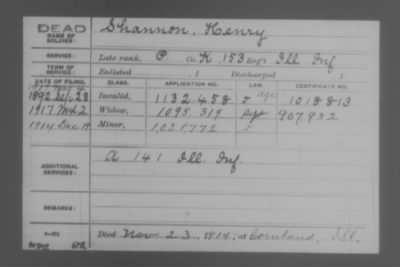 DEAD
NAME OF SOLDIER:
Shannon, Henry
SERVICE:
Late rank, P. Co. K, 153 Reg't Ill Inf
TERM OF SERVICE:
Enlisted , 1 Discharged , 1
DATE OF FILING. CLASS. APPLICATION NO. LAW. CERTIFICATE NO.
1892 July 23 Invalid, 1132.458 age 1018813
1917 Widow, 1095.319 Sept 907,932
1914 Dec. 19 Minor, 1,037,772
ADDITIONAL SERVICES:
A 141 Ill Inf.
REMARKS:
Died Nov 23, 1914, at Cornland, Ill.